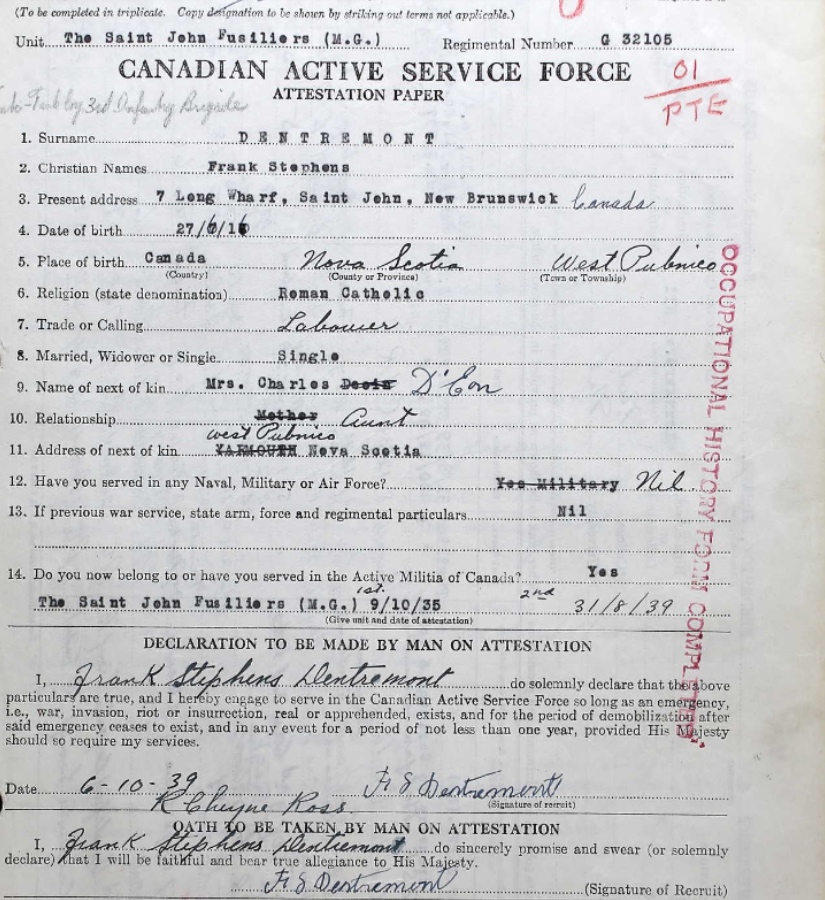 (To be completed in triplicate. Copy designation to be shown by striking out terms not applicable.)
Unit The Saint John Fusiliers (M.G.) Regimental Number G 32105
CANADIAN ACTIVE SERVICE FORCE
01
ATTESTATION PAPER
PTE
3rd Infantry Brigade
1. Surname DENTREMONT
2. Christian Names Frank Stephens
3. Present address 7 Long Wharf, Saint John, New Brunswick Canada
4. Date of birth 27/6/16
5. Place of birth Canada Nova Scotia West Pubnico
(Country) (County or Province) (Town or Township)
6. Religion (state denomination) Roman Catholic
7. Trade or Calling Labourer
8. Married, Widower or Single Single
9. Name of next of kin Mrs. Charles D'Eon
10. Relationship Mother Aunt
west Pubnico
11. Address of next of kin YARMOUTH Nova Scotia
12. Have you served in any Naval, Military or Air Force? Yes Military Nil
13. If previous war service, state arm, force and regimental particulars Nil
14. Do you now belong to or have you served in the Active Militia of Canada? Yes
1st. 2nd
The Saint John Fusiliers (M.G.) 9/10/35 31/8/39
(Give unit and date of attestation)
OCCUPATIONAL HISTORY FORM COMPLETED
DECLARATION TO BE MADE BY MAN ON ATTESTATION
I, Frank Stephens Dentremont do solemnly declare that the above
particulars are true, and I hereby engage to serve in the Canadian Active Service Force so long as an emergency,
i.e., war, invasion, riot or insurrection, real or apprehended, exists, and for the period of demobilization after
said emergency ceases to exist, and in any event for a period of not less than one year, provided His Majesty
should so require my services.
Date 6-10-39 F S Dentremont
(Signature of recruit)
R Cheyne Ross
OATH TO BE TAKEN BY MAN ON ATTESTATION
I, Frank Stephens Dentremont do sincerely promise and swear (or solemnly
declare) that I will be faithful and bear true allegiance to His Majesty.
F S Dentremont (Signature of Recruit)